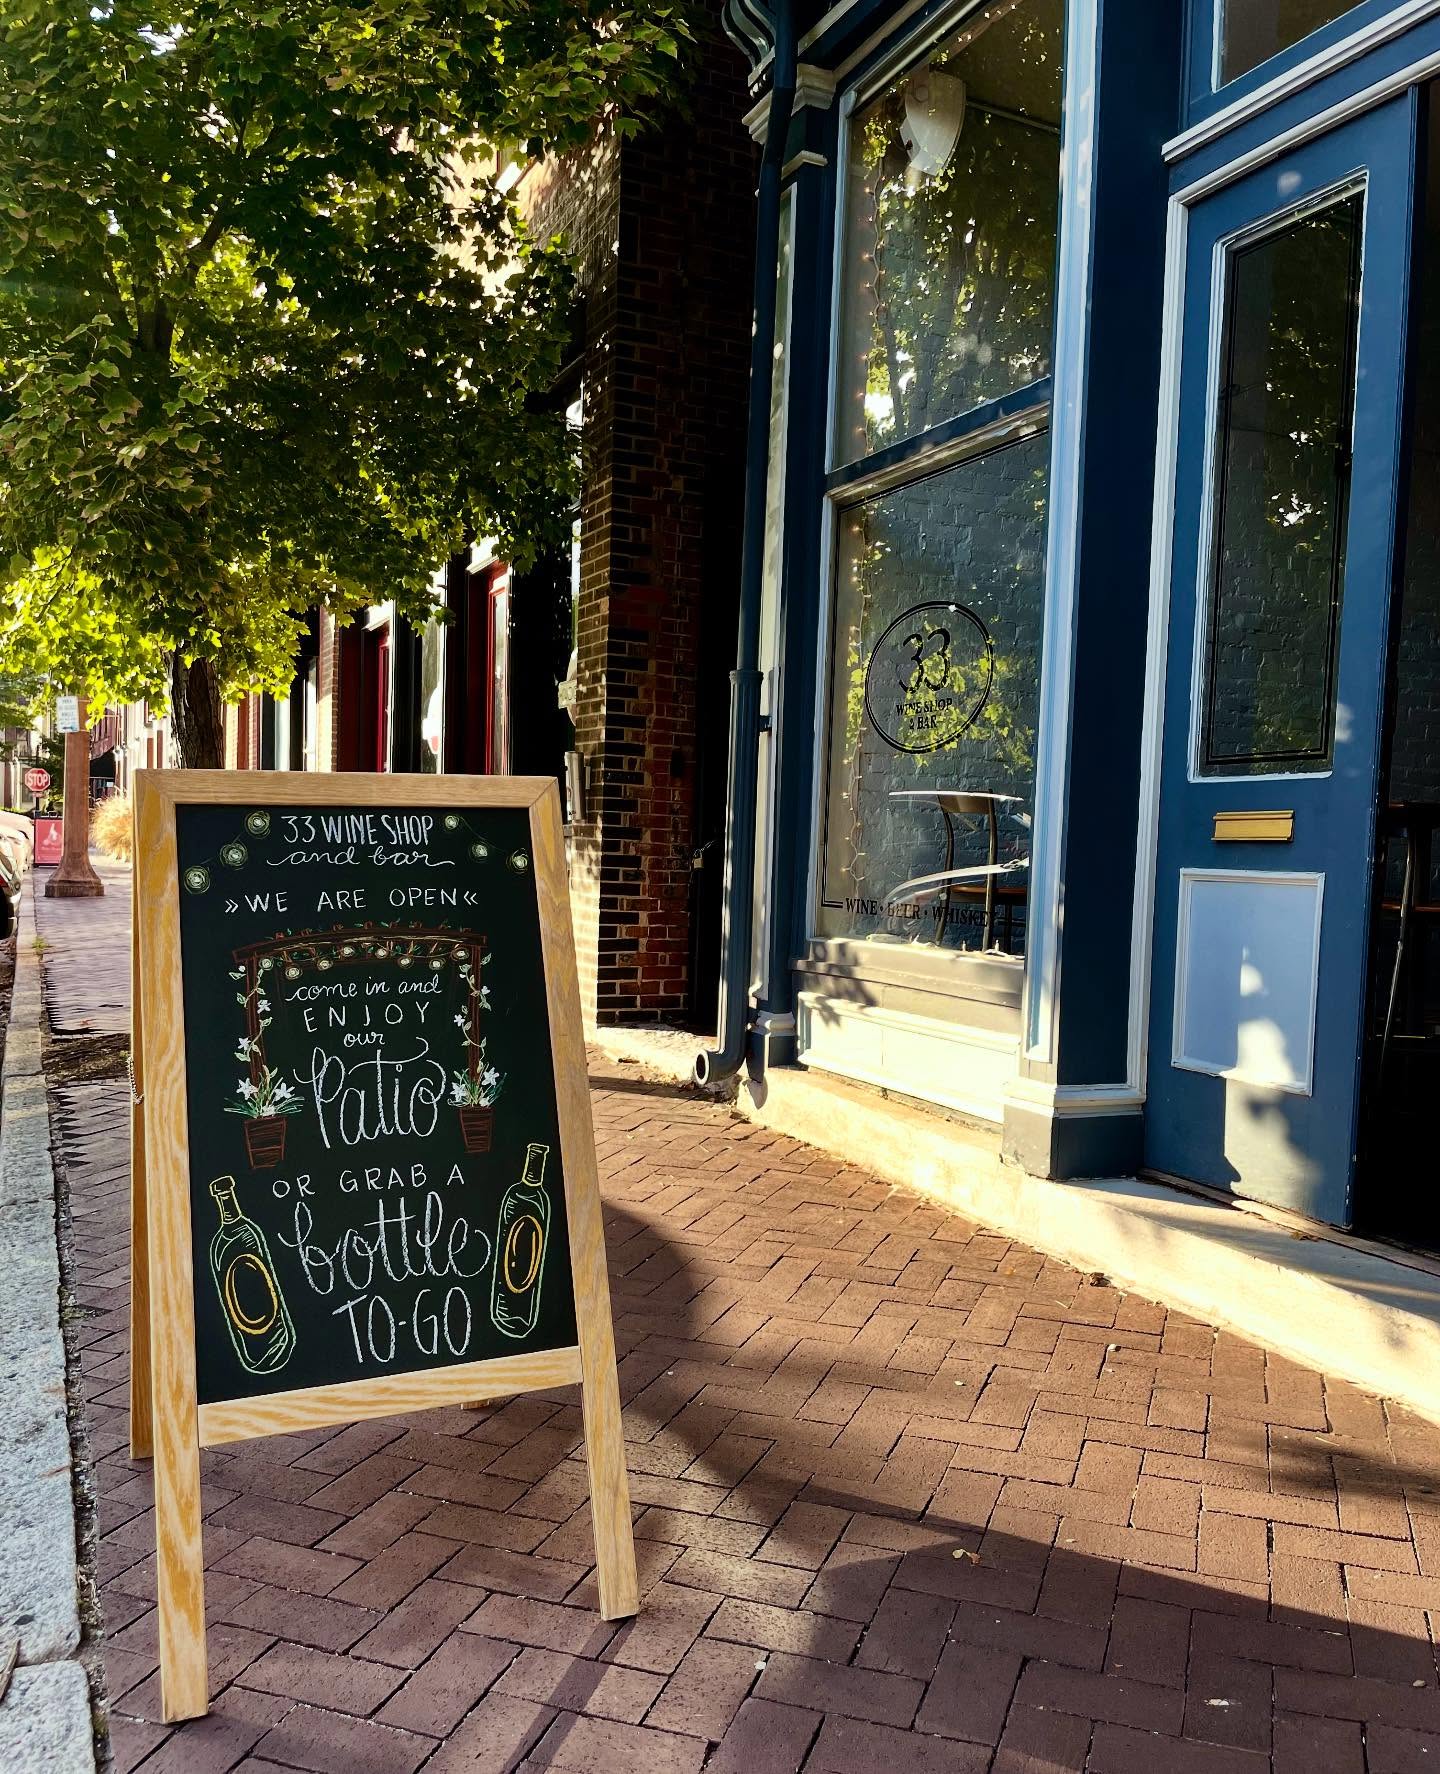 33 WINE SHOP
and bar
»WE ARE OPEN«
come in and
ENJOY
our
Patio
OR GRAB A
bottle
TO-GO
33
WINE SHOP
& BAR
WINE • BEER • WHISKEY
STOP